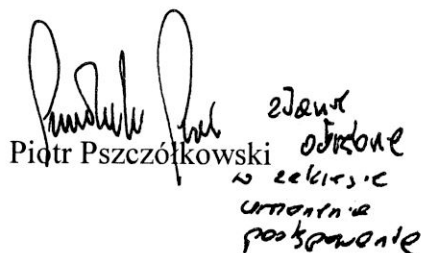 Piotr Pszczółkowski
zdanie
odrębne
w zakresie
umorzenia
postępowania